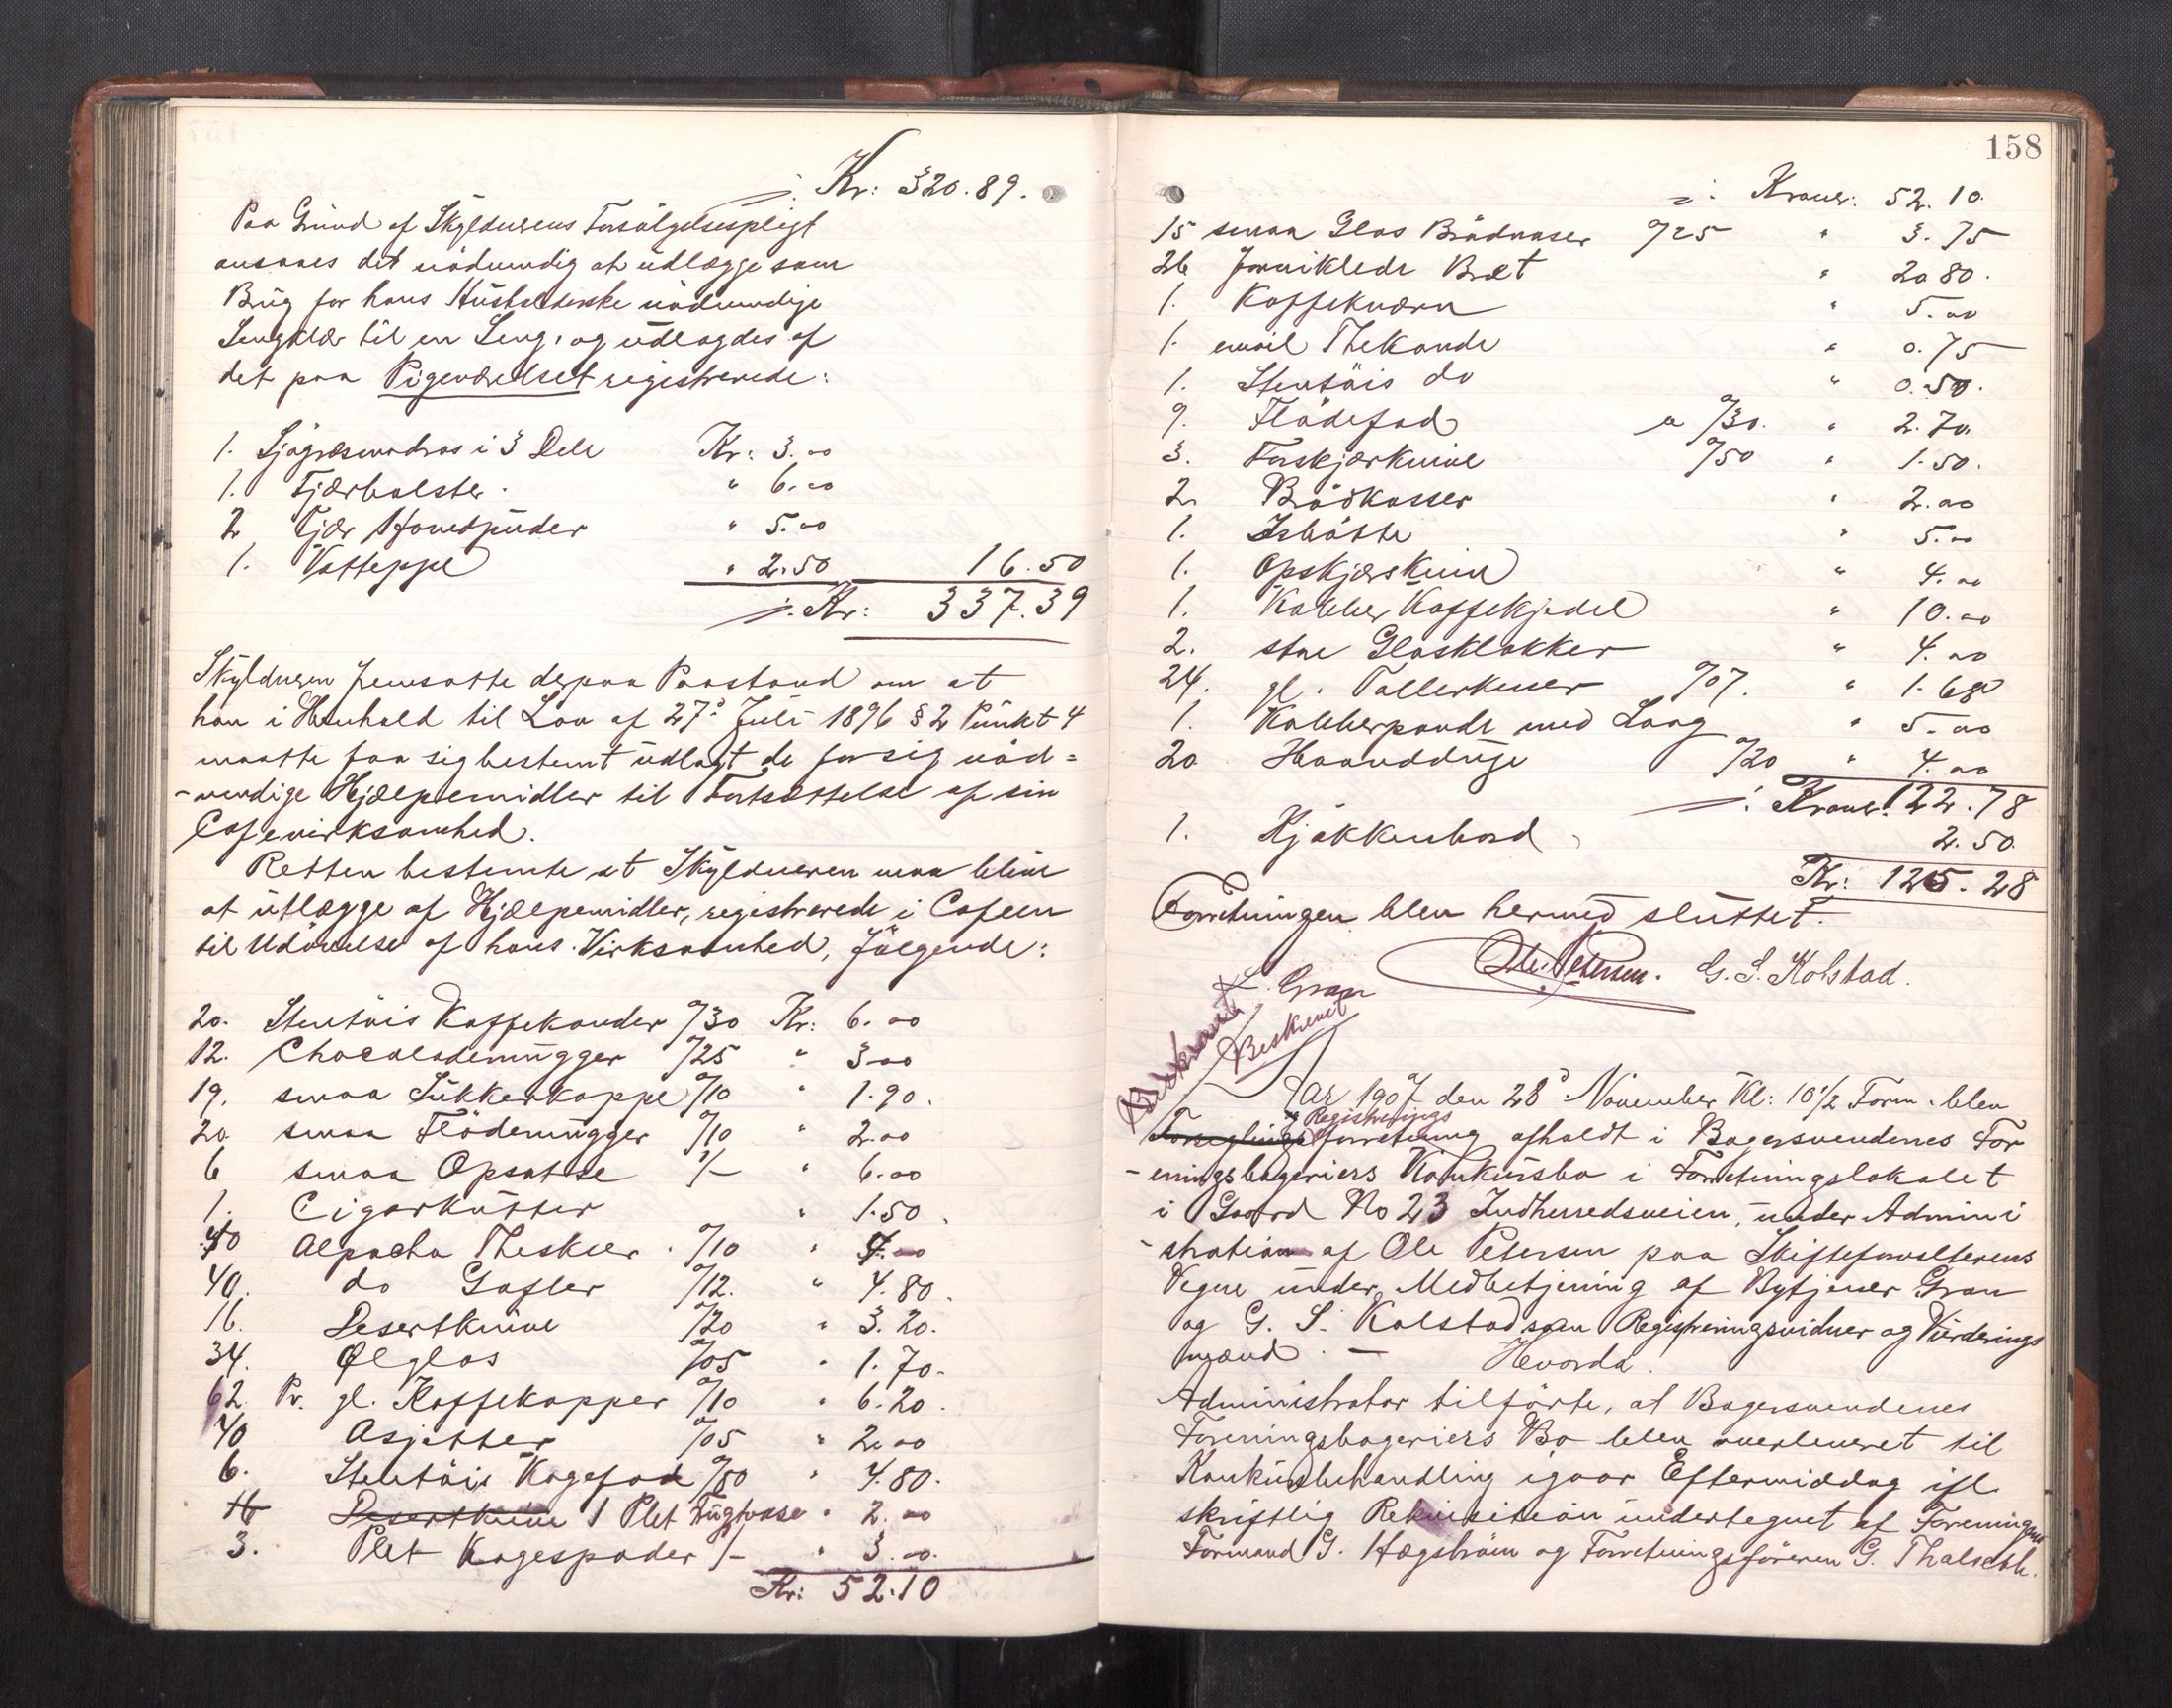 ÷ Kr: 320.89.
Paa Grund af Skyldnerens Forsörgelsespligt
ansaaes det nödvendig at udlægge som
Brug for hans Husholderske nödvendige
Sengklær til en Seng, og udlagdes af
det paa Pigeværelset registrerede:
1. Sjögræsmadras i 3 Dele Kr: 3.00
1. Fjærbolster. " 6.00
2 Fjær Hovedpuder " 5.00
1. Vatteppe " 2.50 16.50
÷ Kr: 337.39
Skyldneren fremsatte derpaa Paastand om at
han i Henhold til Lov af 27d. Juli 1896 § 2 Punkt 4
maatte faa sig bestemt udlagt de for sig nöd=
-vendige Hjælpemidler til Fortsættelse af sin
Cafevirksomhed.
Retten bestemte at Skyldneren maa blive
at utlægge af Hjælpemidler, registrerede i Cafeen
til Udövelse af hans Virksomhed, fölgende:
20. Stentöis Kaffekander a/30 Kr: 6.00
12. Chocolademugger a/25 " 3.00
19. smaa Sukkerkoppe a/10 " 1.90.
20 smaa Flödemugger a/10 " 2.00
6 smaa Opsatse 1/- " 6.00
1. Cigarkutter " 1.50.
40 Alpacha Theskeer a/10 " 4.00
40. do Gafler a/12. " 4.80.
16. Desertknive a/20 " 3.20.
34. Ølglas a/05 " 1.70.
62 Pr. gl. Kaffekopper a/10 " 6.20.
40 Asjetter a/05 " 2.00
6. Stentöis Kagefad a/80 " 4.80.
16 Desertknive 1 Plet Frugtvase " 2.00
3. Plet Kagespader 1/- " 3.00.
Kr: 52.10
158
÷ Kroner: 52.10.
15 smaa Glas Brödvaser a/25 " 3.75
26 forniklede Bræt " 20.80.
1. Kaffekværn " 5.00
1. email Thekande " 0.75
1. Stentöis do " 0.50.
9. Flödefad a a/30. " 2.70.
3. Forskjærknive a/50 " 1.50.
2. Brödkasser " 2.00
1. Isbötte " 5.00
1. Opskjærskniv " 4.00
1. Kobber Kaffekjedel " 10.00
2. store Glasklokker " 4.00
24. gl. Tallerkener a/07. " 1.68
1. Kobberpande med Laag " 5.00
20 Haandduge a/20 " 4.00
÷ Kroner: 122.78
1. Kjökkenbord 2.50.
Kr: 125.28
Forretningen blev hermed sluttet.
Ole Petersen. G. S. Kolstad.
L. Gran
Beskrevet
Beskrevet
Aar 1907 den 28d November Kl: 10 1/2 Form. blev
Registrerings
Forseglingsforretning afholdt i Bagersvendenes For
-eningsbageriers Konkursbo i Forretningslokalet
i Gaard No 23 Indherredsveien, under Admini
-stration af Ole Petersen paa Skifteforvalterens
Vegne under Medbetjening af Bytjener Gran
og G. S. Kolstad som Registreringsvidner og Vurderings
mænd. — Hvorda.
Administrator tilförte, at Bagersvendenes
Foreningsbageriers Bo blev overleveret til
Konkursbehandling igaar Eftermiddag ifl.
skriftlig Rekvisition undertegnet af Foreningens
Formand G. Hægström og Forretningsföreren G.